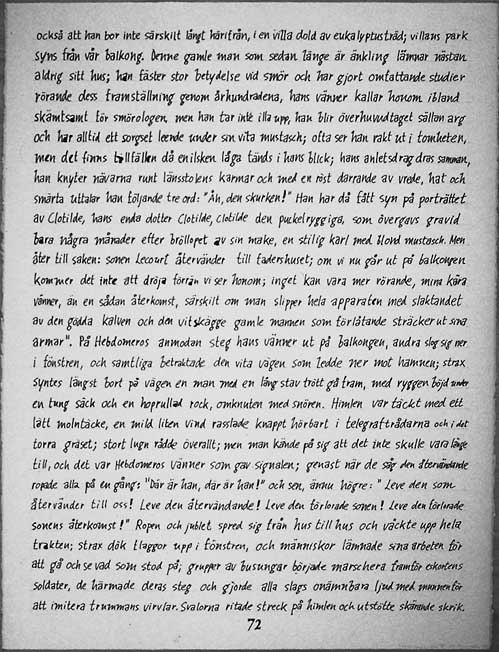 också att han bor inte särskilt långt härifrån, i en villa dold av eukalyptusträd; villans park
syns från vår balkong. Denne gamle man som sedan länge är änkling lämnar nästan
aldrig sitt hus; han fäster stor betydelse vid smör och har gjort omfattande studier
rörande dess framställning genom århundradena, hans vänner kallar honom ibland
skämtsamt för smörologen, men han tar inte illa upp, han blir överhuvudtaget sällan arg
och har alltid ett sorgset leende under sin vita mustasch; ofta ser han rakt ut i tomheten,
men det finns tillfällen då en ilsken låga tänds i hans blick; hans anletsdrag dras samman,
han knyter nävarna runt länsstolens karmar och med en röst darrande av vrede, hat och
smärta uttalar han följande tre ord: "Åh, den skurken!" Han har då fått syn på porträttet
av Clotilde, hans enda dotter Clotilde, Clotilde den puckelryggiga, som övergavs gravid
bara några månader efter bröllopet av sin make, en stilig karl med blond mustasch. Men
åter till saken: sonen Lecourt återvänder till fadershuset; om vi nu går ut på balkongen
kommer det inte att dröja förrän vi ser honom; inget kan vara mer rörande, mina kära
vänner, än en sådan återkomst, särskilt om man slipper hela apparaten med slaktandet
av den gödda kalven och den vitskägge gamle mannen som förlåtande sträcker ut sina
armar". På Hebdomeros anmodan steg hans vänner ut på balkongen, andra slog sig ner
i fönstren, och samtliga betraktade den vita vägen som ledde ner mot hamnen; strax
syntes längst bort på vägen en man med en lång stav trött gå fram, med ryggen böjd under
en tung säck och en hoprullad rock, omknuten med snören. Himlen var täckt med ett
lätt molntäcke, en mild liten vind rasslade knappt hörbart i telegraftrådarna och i det
torra gräset; stort lugn rådde överallt; men man kände på sig att det inte skulle vara länge
till, och det var Hebdomeros vänner som gav signalen; genast när de såg den återvändande
ropade alla på en gång: "Där är han, där är han!" och sen, ännu högre: "Leve den som
återvänder till oss! Leve den återvändande! Leve den förlorade sonen! Leve den förlorade
sonens återkomst!" Ropen och jublet spred sig från hus till hus och väckte upp hela
trakten; strax dök flaggor upp i fönstren, och människor lämnade sina arbeten för
att gå och se vad som stod på; grupper av busungar började marschera framför eskortens
soldater, de härmade deras steg och gjorde alla slags onämnbara ljud med munnen för
att imitera trummans virvlar. Svalorna ritade streck på himlen och utstötte skärande skrik.
72